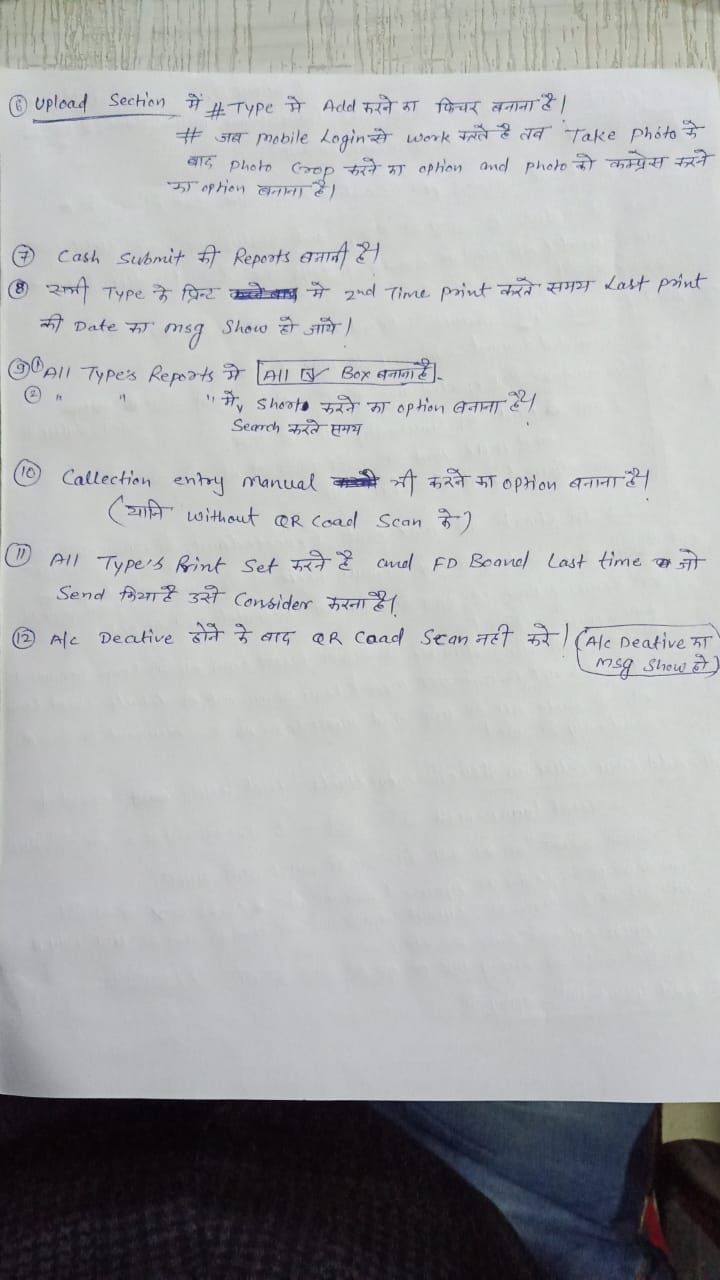 ⑥ Upload Section में # Type मे Add करने का फिचर बनाना है।
# जब mobile Login से work करते है तब Take photo के
बाद photo Crop करने का option and photo को कम्प्रेस करने
का option बनाना है।
⑦ Cash Submit की Reports बनानी है।
⑧ सभी Type के प्रिन्ट मे 2nd Time print करते समय Last print
की Date का msg Show हो जाये।
⑨ ① All Type's Reports मे All ☑ Box बनाना है।
② " " " मे, Short करने का option बनाना है।
Search करते समय
⑩ Callection entry manual भी करने का option बनाना है।
(यानि without QR Coad Scan के)
⑪ All Type's Print Set करने है and FD Boand Last time जो
Send किया है उसे Consider करना है।
⑫ A/c Deative होने के बाद QR Coad Scan नही करे। (A/c Deative का
msg Show हो)